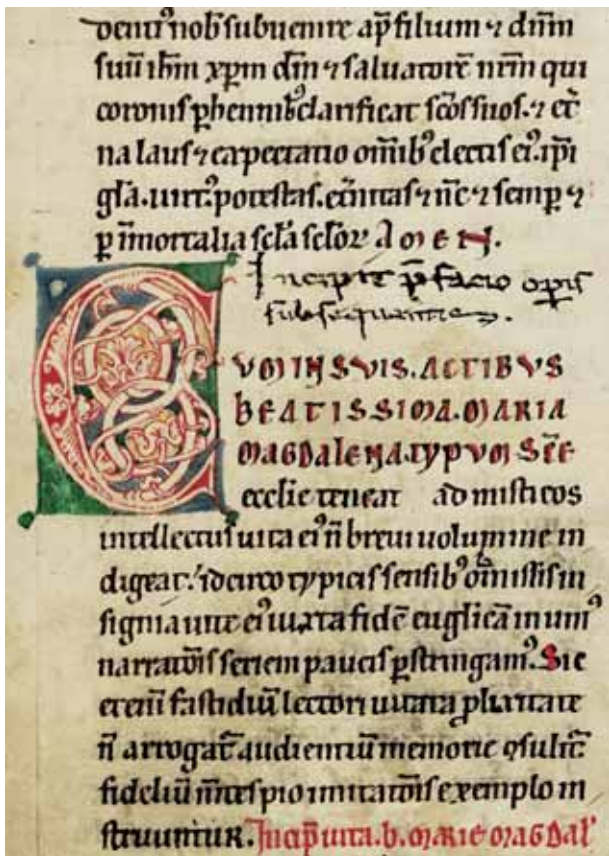 nob̄ subuenire ap̄ filium ⁊ dn̄m
suū ih̄m xp̄m dn̄m ⁊ saluatorē nr̄m qui
coronis ꝑhennibꝰ clarificat sc̄os suos. ⁊ et̄
na laus ⁊ expectatio om̄ibꝰ electis eiꝰ. ip̄i
gl̄a. uirtꝰ. potestas. et̄nitas ⁊ nc̄ ⁊ semꝑ ⁊
ꝑ īmortalia scl̄a scl̄oꝝ AMEN.
Incipit p̄facio oꝑis
subsequentis.
CVM IN SVIS. ACTIBVS
BEATISSIMA. MARIA
MAGDALENA. TYPVM SC̄E
ecclie teneat ad misticos
intellectus uita eiꝰ n̄ breui uolumine in
digeat: idcirco typicis sensibꝰ om̄issis in
sigmauite eiꝰ iuxta fidē euglicā in unꝰ
narratōis seriem paucis ꝑstringamꝰ. Sic
etenī fastidiū lectori uitata ꝓlixitate
n̄ arrogat̄ audientiū memorie ꝯsulit̄
fideliū m̄tes pio imitatōis exemplo in
struuntur. Incip̄ uita. b. MARIE MAGDAL'